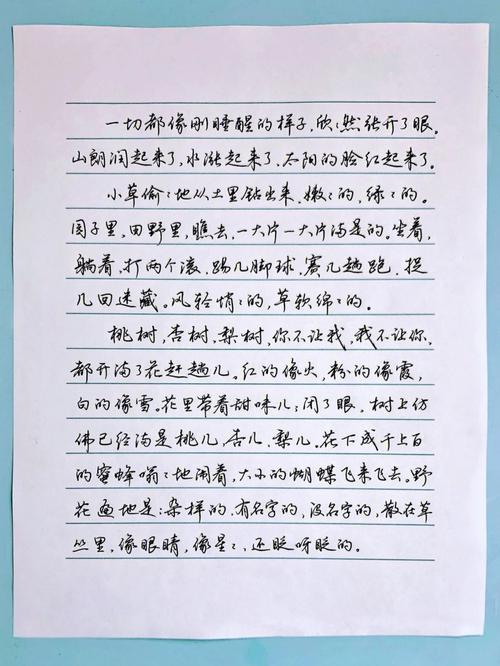 一切都像刚睡醒的样子,欣:然张开了眼。
山朗润起来了,水涨起来了,太阳的脸红起来了。
小草偷:地从土里钻出来,嫩:的,绿:的。
园子里,田野里,瞧去,一大片一大片满是的。坐着,
躺着,打两个滚,踢几脚球,赛几趟跑,捉
几回迷藏。风轻悄:的,草软绵:的。
桃树,杏树,梨树,你不让我,我不让你,
都开满了花赶趟儿。红的像火,粉的像霞,
白的像雪。花里带着甜味儿:闭了眼,树上仿
佛已经满是桃儿,杏儿,梨儿。花下成千上百
的蜜蜂嗡:地闹着,大小的蝴蝶飞来飞去。野
花遍地是:杂样的,有名字的,没名字的,散在草
丛里,像眼睛,像星:、还眨呀眨的。